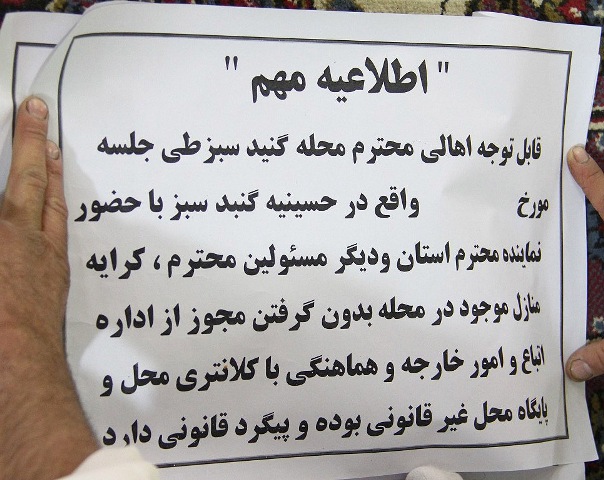 " اطلاعیه مهم "
قابل توجه اهالی محترم محله گنبد سبز طی جلسه
مورخ واقع در حسینیه گنبد سبز با حضور
نماینده محترم استان ودیگر مسئولین محترم ، کرایه
منازل موجود در محله بدون گرفتن مجوز از اداره
اتباع و امور خارجه و هماهنگی با کلانتری محل و
پایگاه محل غیر قانونی بوده و پیگرد قانونی دارد